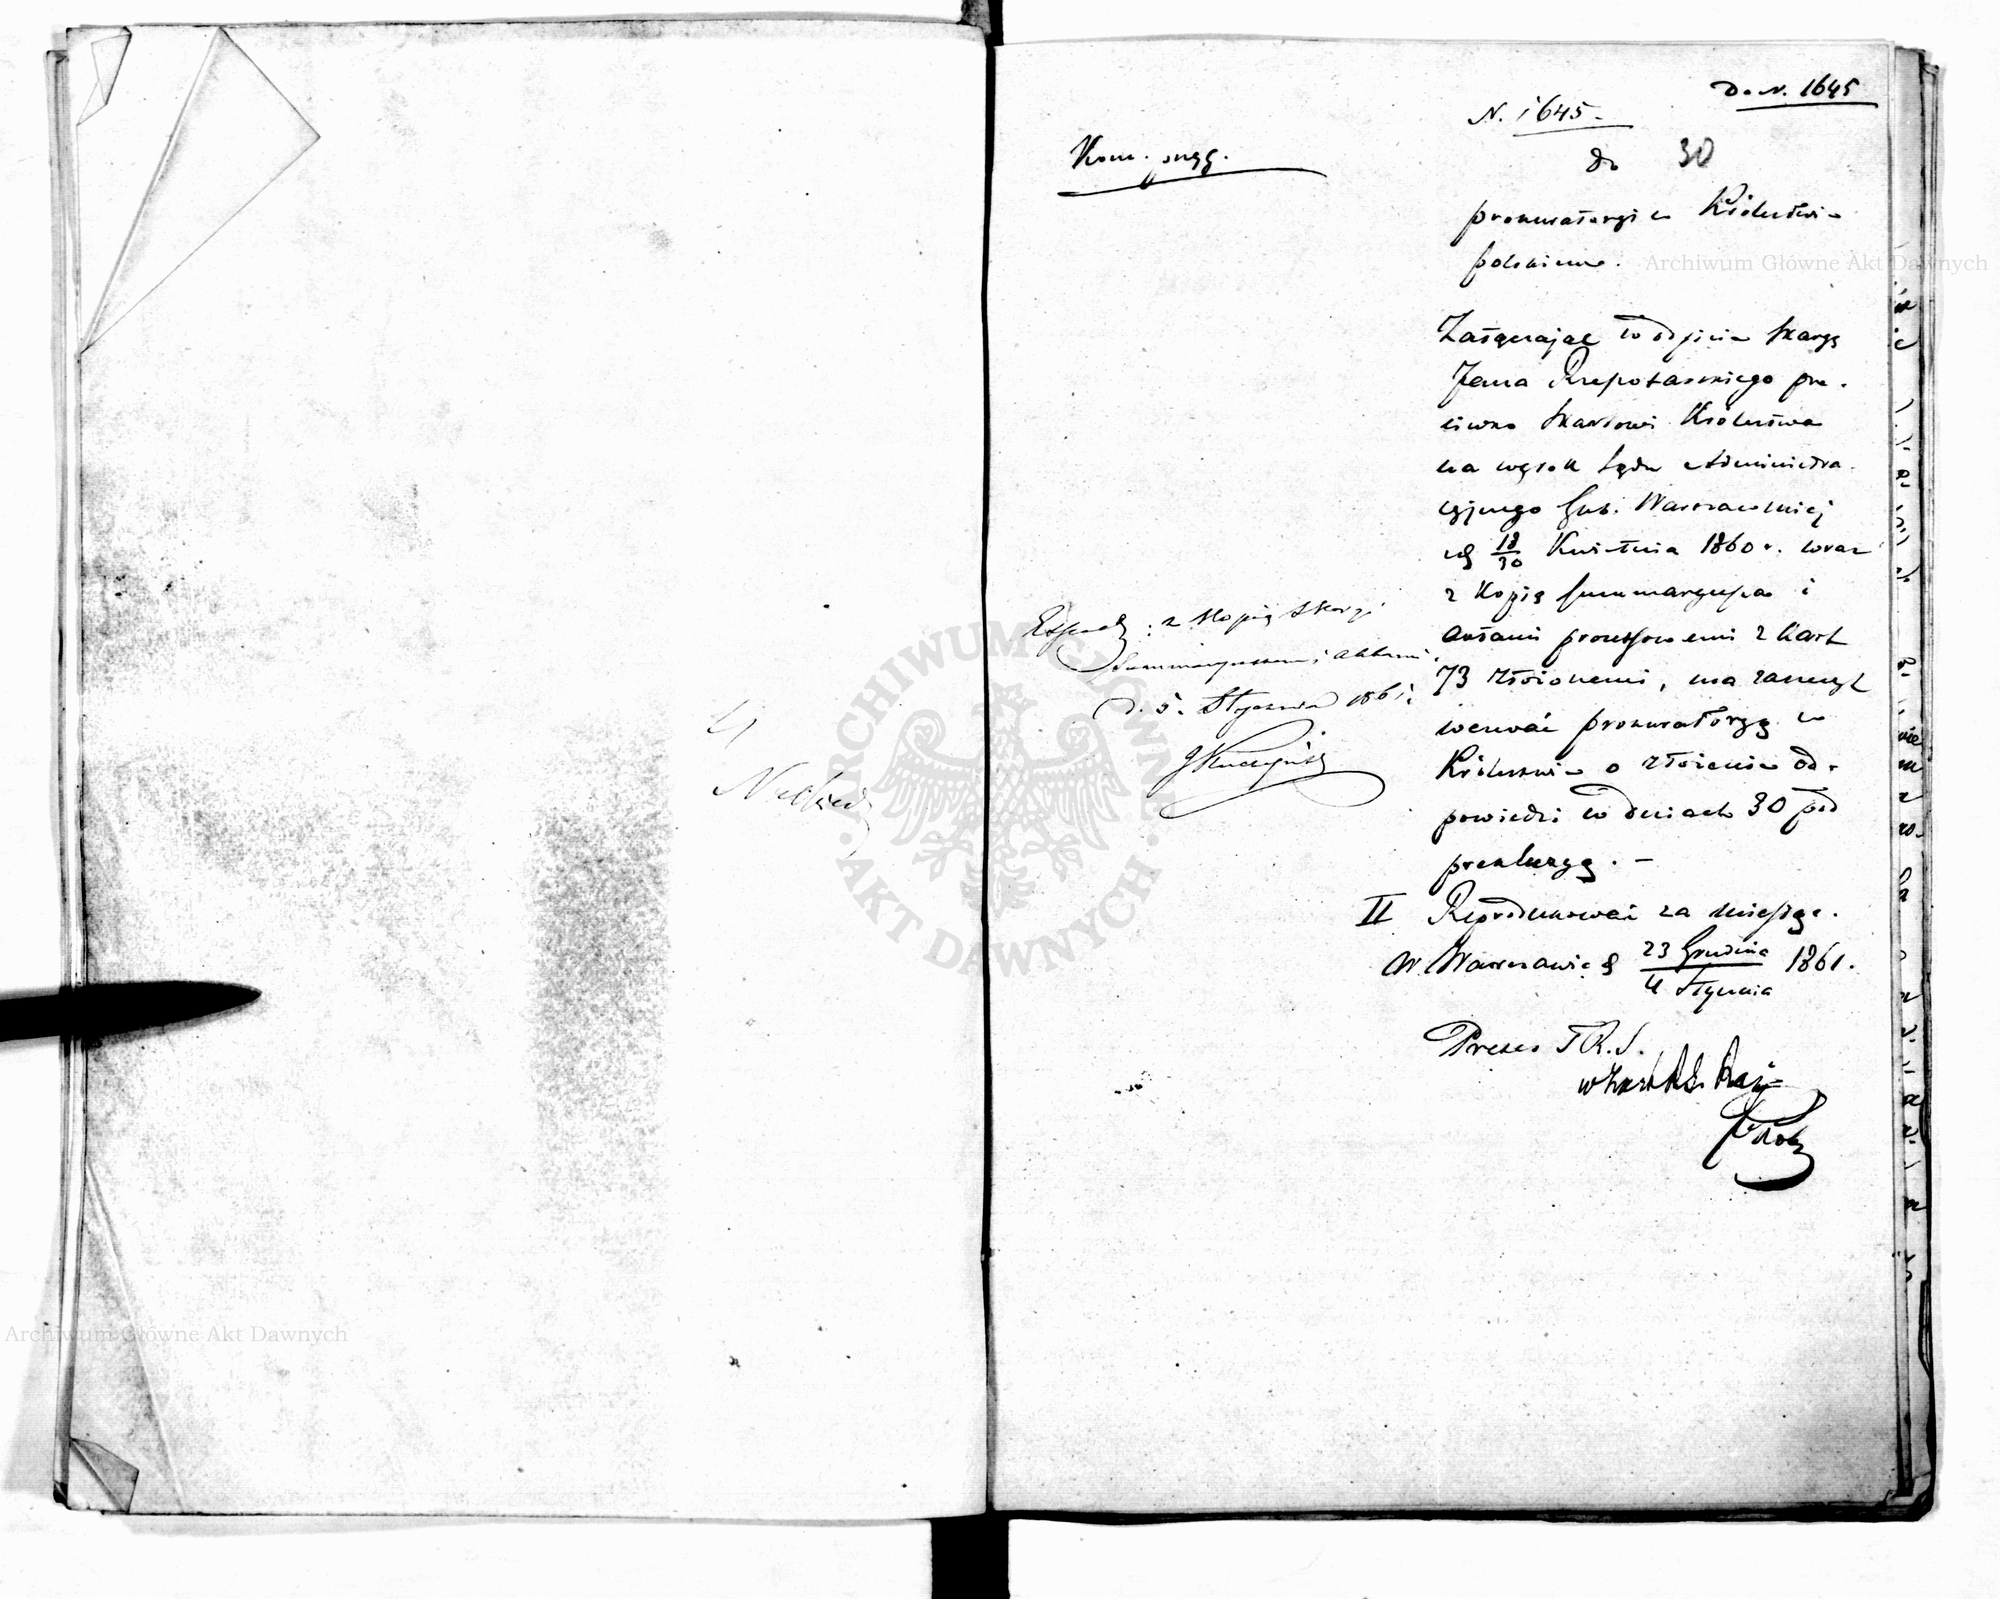 D. N. 1645
N. 1645.
do 30
Kom. przg.
prokuratoryi w Królestwie
polskiem.
Załączając w odpisie skargę
Jana Przepołaskiego prze-
ciwko Skarbowi Królestwa
na wyrok Sądu Administra-
cyjnego Gub. Warszawskiej
z d. 18/30 Kwietnia 1860 r. wraz
z kopią summaryusza i
aktami processowemi z kart
73 złożonemi, ma zaszczyt
wezwać prokuratoryę w
Królestwie o złożenie od-
powiedzi w dniach 30 pod
prekluzyą. —
II Reprodukować za miesiąc.
w Warszawie d 23 Grudnia / 4 Stycznia 1861.
Prezes T.R.S.
Exped: z kopią skargi
Summaryuszem i aktami
d. 5. Stycznia 1861.
Archiwum Główne Akt Dawnych
Archiwum Główne Akt Dawnych
ARCHIWUM GŁÓWNE
· AKT DAWNYCH ·